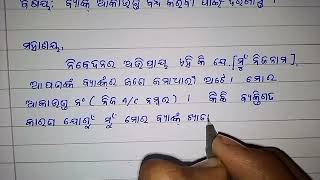 ବିଷୟ: ବ୍ୟାଙ୍କ ଆକାଉଣ୍ଟ ବନ୍ଦ କରିବା ପାଇଁ ଦରଖାସ୍ତ ।
ମହାଶୟ,
ନିବେଦନର ଅଭିପ୍ରାୟ ଏହି କି ଯେ, [ମୁଁ ନିଜ ନାମ],
ଆପଣଙ୍କ ବ୍ୟାଙ୍କର ଜଣେ ଜମାଧାରୀ ଅଟେ । ମୋର
ଆକାଉଣ୍ଟ ନଂ ( ନିଜ A/C ନମ୍ବର) । କିଛି ବ୍ୟକ୍ତିଗତ
କାରଣ ଯୋଗୁଁ ମୁଁ ମୋର ବ୍ୟାଙ୍କ